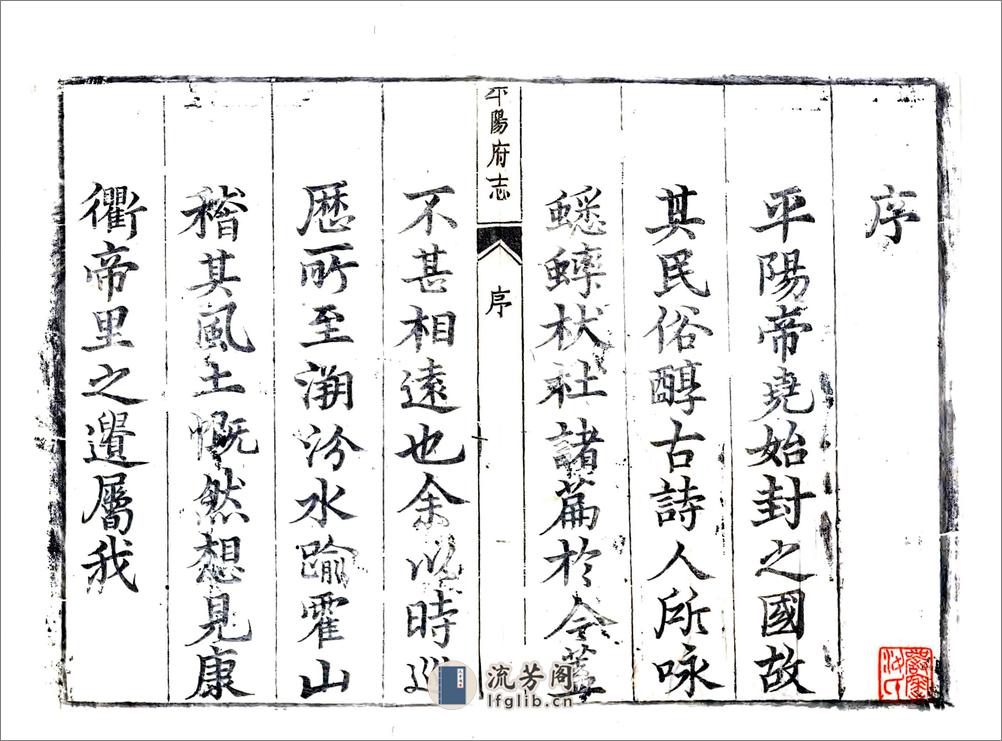 序
平陽帝堯始封之國故
其民俗醇古詩人所咏
蟋蟀杕杜諸篇於今蓋
平陽府志
序
不甚相遠也余以時巡
歷所至泝汾水踰霍山
稽其風土慨然想見康
衢帝里之遺屬我
流芳阁
lfglib.cn